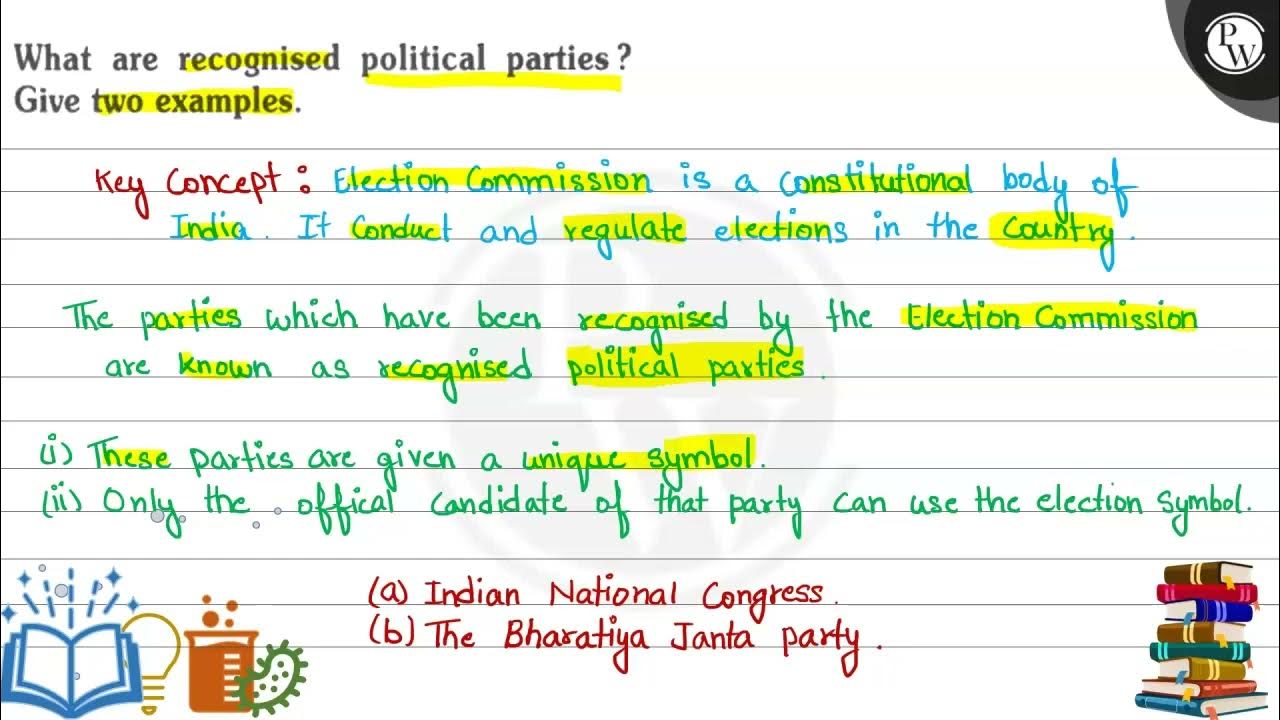 What are recognised political parties?
Give two examples.
PW
Key Concept: Election Commission is a constitutional body of
India. It conduct and regulate elections in the country.
The parties which have been recognised by the Election Commission
are known as recognised political parties.
(i) These parties are given a unique symbol.
(ii) Only the offical candidate of that party can use the election symbol.
(a) Indian National Congress.
(b) The Bharatiya Janta party.